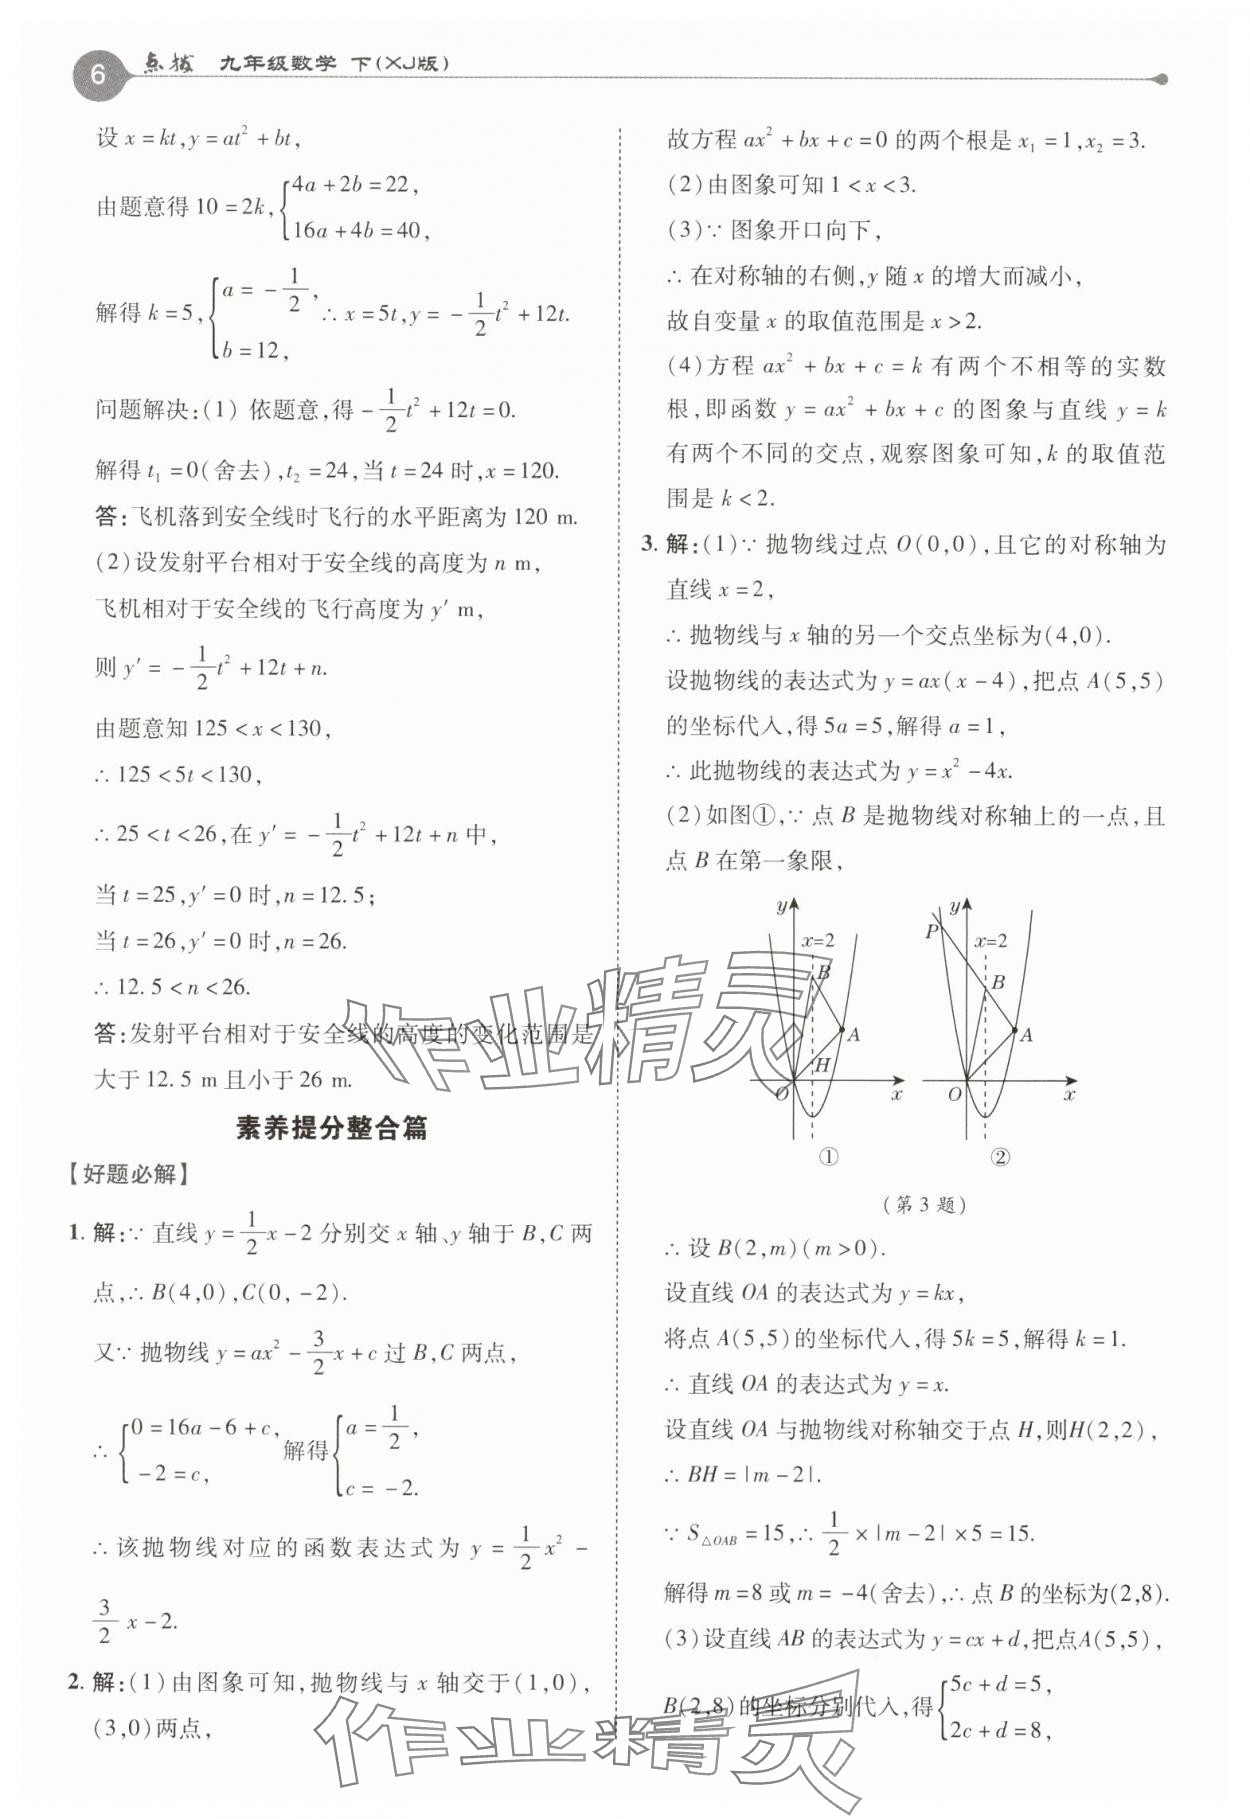 6 点拨 九年级数学 下(XJ版)
设 x = kt, y = at² + bt,
由题意得 10 = 2k, { 4a + 2b = 22, 16a + 4b = 40,
解得 k = 5, { a = -1/2, b = 12, ∴ x = 5t, y = -1/2 t² + 12t.
问题解决:(1) 依题意,得 -1/2 t² + 12t = 0.
解得 t₁ = 0(舍去), t₂ = 24,当 t = 24 时, x = 120.
答:飞机落到安全线时飞行的水平距离为 120 m.
(2)设发射平台相对于安全线的高度为 n m,
飞机相对于安全线的飞行高度为 y′ m,
则 y′ = -1/2 t² + 12t + n.
由题意知 125 < x < 130,
∴ 125 < 5t < 130,
∴ 25 < t < 26,在 y′ = -1/2 t² + 12t + n 中,
当 t = 25, y′ = 0 时, n = 12.5;
当 t = 26, y′ = 0 时, n = 26.
∴ 12.5 < n < 26.
答:发射平台相对于安全线的高度的变化范围是
大于 12.5 m 且小于 26 m.
素养提分整合篇
【好题必解】
1. 解:∵ 直线 y = 1/2 x - 2 分别交 x 轴、y 轴于 B, C 两
点,∴ B(4,0), C(0, -2).
又∵ 抛物线 y = ax² - 3/2 x + c 过 B, C 两点,
∴ { 0 = 16a - 6 + c, -2 = c, 解得 { a = 1/2, c = -2.
∴ 该抛物线对应的函数表达式为 y = 1/2 x² -
3/2 x - 2.
2. 解:(1)由图象可知,抛物线与 x 轴交于(1,0),
(3,0)两点,
故方程 ax² + bx + c = 0 的两个根是 x₁ = 1, x₂ = 3.
(2)由图象可知 1 < x < 3.
(3)∵ 图象开口向下,
∴ 在对称轴的右侧, y 随 x 的增大而减小,
故自变量 x 的取值范围是 x > 2.
(4)方程 ax² + bx + c = k 有两个不相等的实数
根,即函数 y = ax² + bx + c 的图象与直线 y = k
有两个不同的交点,观察图象可知, k 的取值范
围是 k < 2.
3. 解:(1)∵ 抛物线过点 O(0,0),且它的对称轴为
直线 x = 2,
∴ 抛物线与 x 轴的另一个交点坐标为(4,0).
设抛物线的表达式为 y = ax(x - 4),把点 A(5,5)
的坐标代入,得 5a = 5,解得 a = 1,
∴ 此抛物线的表达式为 y = x² - 4x.
(2)如图①,∵ 点 B 是抛物线对称轴上的一点,且
点 B 在第一象限,
y x=2 B A H O x ①
y P x=2 B A O x ②
(第 3 题)
∴ 设 B(2,m)(m > 0).
设直线 OA 的表达式为 y = kx,
将点 A(5,5)的坐标代入,得 5k = 5,解得 k = 1.
∴ 直线 OA 的表达式为 y = x.
设直线 OA 与抛物线对称轴交于点 H,则H(2,2),
∴ BH = |m - 2|.
∵ S△OAB = 15,∴ 1/2 × |m - 2| × 5 = 15.
解得 m = 8 或 m = -4(舍去),∴ 点 B 的坐标为(2,8).
(3)设直线 AB 的表达式为 y = cx + d,把点A(5,5),
B(2,8)的坐标分别代入,得 { 5c + d = 5, 2c + d = 8,
作业精灵
作业精灵